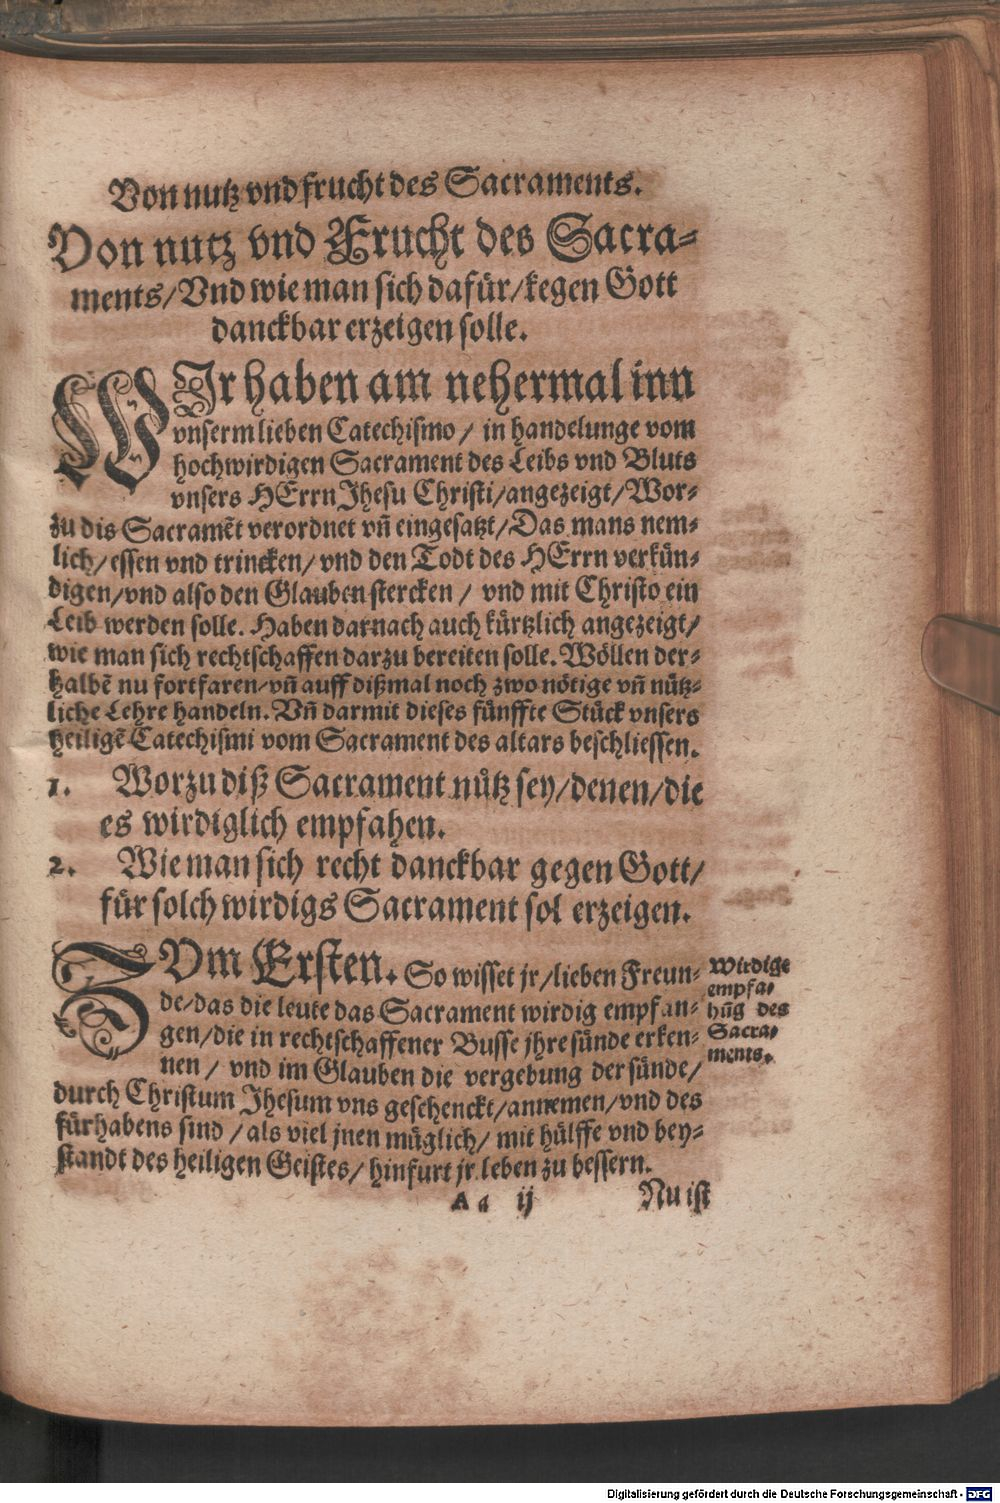 Von nutz vnd frucht des Sacraments.
Von nutz vnd Frucht des Sacra-
ments/Vnd wie man sich dafür/kegen Gott
danckbar erzeigen solle.
WIr haben am nehermal inn
vnserm lieben Catechismo / in handelunge vom
hochwirdigen Sacrament des Leibs vnd Bluts
vnsers HErrn Jhesu Christi/angezeigt/Wor-
zu dis Sacramēt verordnet vn̄ eingesatzt/Das mans nem-
lich/essen vnd trincken/vnd den Todt des HErrn verkün-
digen/vnd also den Glauben stercken / vnd mit Christo ein
Leib werden solle. Haben darnach auch kürtzlich angezeigt/
wie man sich rechtschaffen darzu bereiten solle. Wöllen der-
halbē nu fortfaren/vn̄ auff dißmal noch zwo nötige vn̄ nütz-
liche Lehre handeln. Vn̄ darmit dieses fünffte Stück vnsers
heiligē Catechismi vom Sacrament des altars beschliessen.
1. Worzu diß Sacrament nütz sey/denen/die
es wirdiglich empfahen.
2. Wie man sich recht danckbar gegen Gott/
für solch wirdigs Sacrament sol erzeigen.
ZVm Ersten. So wisset jr/lieben Freun-
de/das die leute das Sacrament wirdig empfan-
gen/die in rechtschaffener Busse jhre sünde erken-
nen / vnd im Glauben die vergebung der sünde/
durch Christum Jhesum vns geschenckt/annemen/vnd des
fürhabens sind / als viel jnen müglich/ mit hülffe vnd bey-
standt des heiligen Geistes/ hinfurt jr leben zu bessern.
Wirdige
empfa-
hūg des
Sacra-
ments.
A a ij Nu ist
Digitalisierung gefördert durch die Deutsche Forschungsgemeinschaft - DFG